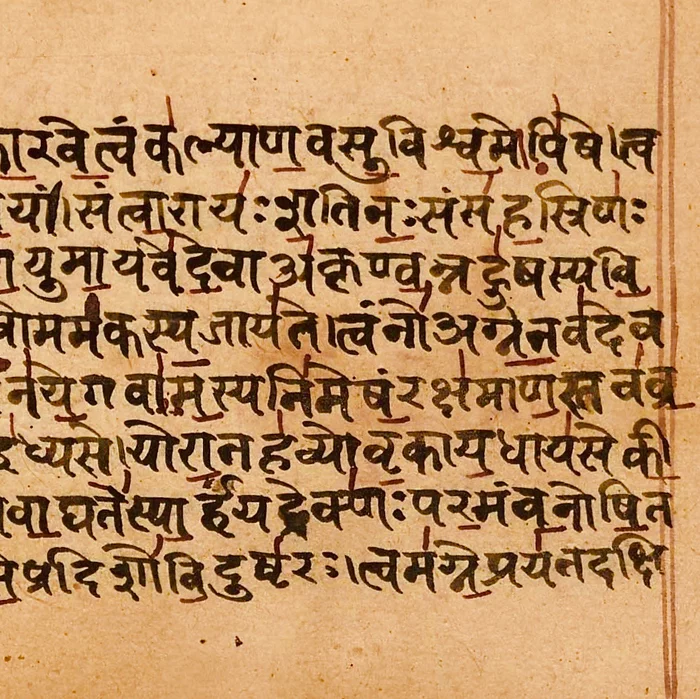 कारवे त्वं कल्याण वसु विश्वमोपिषे । त्व
यं । सं त्वा रायः शतिनः सं सहस्रिणः
युमायवे देवा अकृण्वन्नहुषस्य वि
ममकस्य जायते । त्वं नो अग्ने तव देव
नये गवामस्यनिमेषं रक्षमाणस्तव व्र
इध्यसे । यो रातहव्योवृकाय धायसे की
वाघते स्पार्हं यद्रेक्णः परमं वनोषि त
प्र दिशो विदुष्टरः । त्वमग्ने प्रयतदक्षि